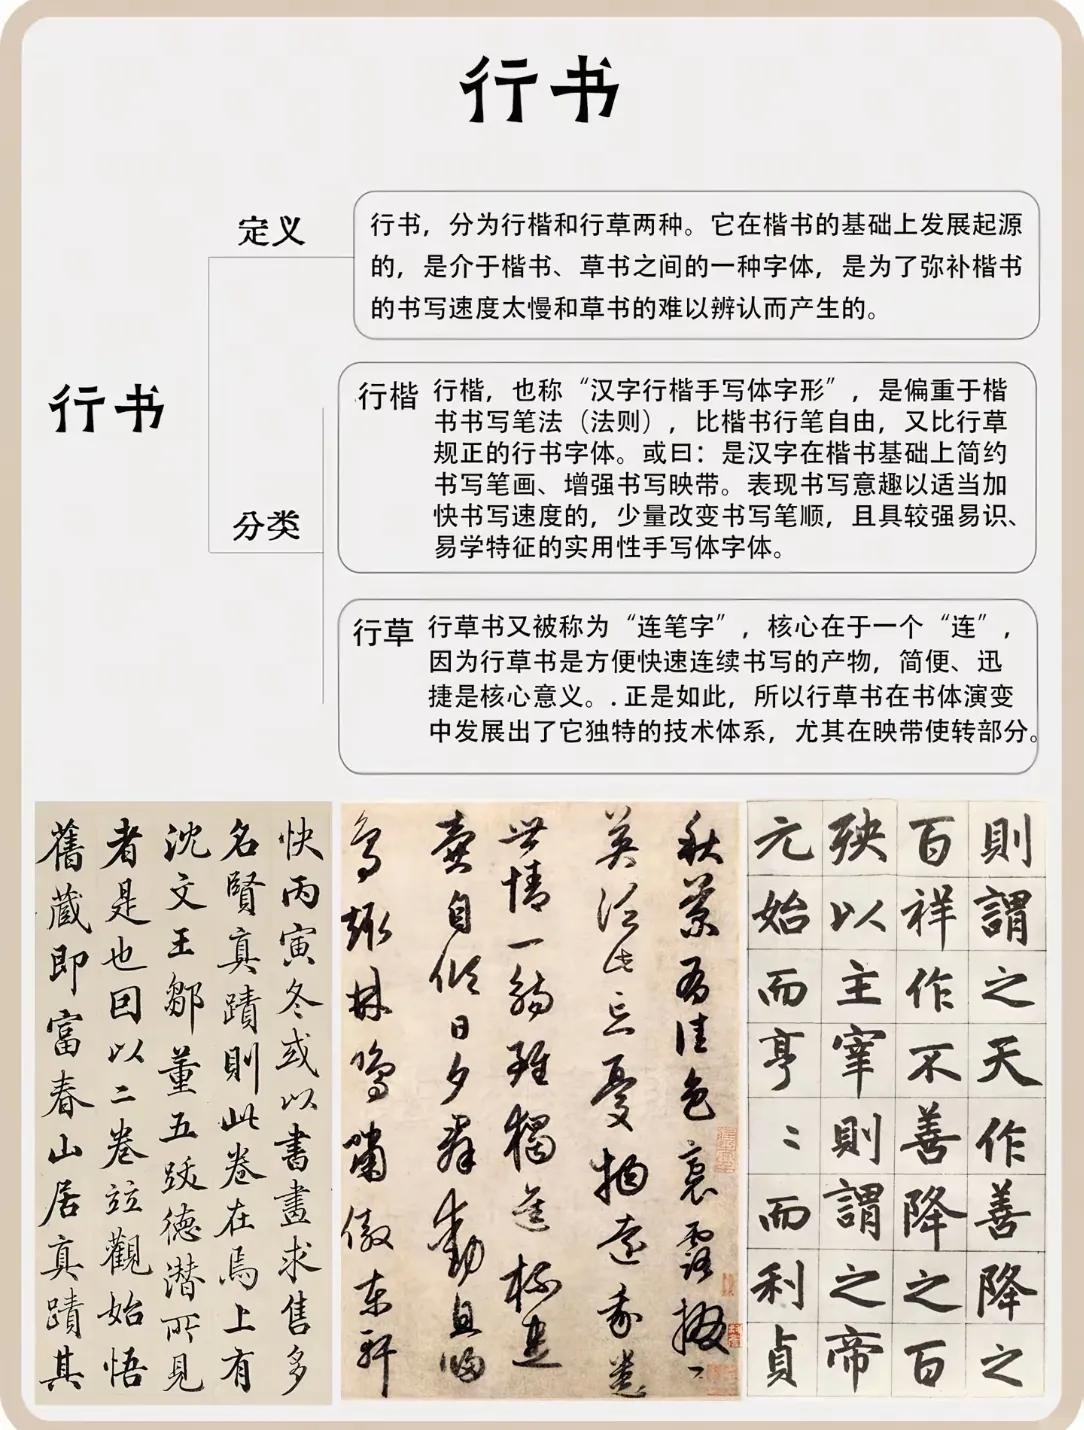 行书
定义
行书，分为行楷和行草两种。它在楷书的基础上发展起源
的，是介于楷书、草书之间的一种字体，是为了弥补楷书
的书写速度太慢和草书的难以辨认而产生的。
行书
分类
行楷
行楷，也称“汉字行楷手写体字形”，是偏重于楷
书书写笔法（法则），比楷书行笔自由，又比行草
规正的行书字体。或曰：是汉字在楷书基础上简约
书写笔画、增强书写映带。表现书写意趣以适当加
快书写速度的，少量改变书写笔顺，且具较强易识、
易学特征的实用性手写体字体。
行草
行草书又被称为“连笔字”，核心在于一个“连”，
因为行草书是方便快速连续书写的产物，简便、迅
捷是核心意义。.正是如此，所以行草书在书体演变
中发展出了它独特的技术体系，尤其在映带使转部分。
快丙寅冬或以書畫求售多
名賢真蹟則此卷在焉上有
沈文王鄒董五跋德潜所見
者是也回以二卷竝觀始悟
舊蔵即富春山居真蹟其
秋菊有佳色裛露掇
英泛此忘憂物遠我
世情一觴雖獨進杯
壷自傾日夕群動息
鳥趣林鳴嘯傲東軒
則謂之天作善降之
百祥作不善降之百
殃以主宰則謂之帝
元始而亨〻而利貞